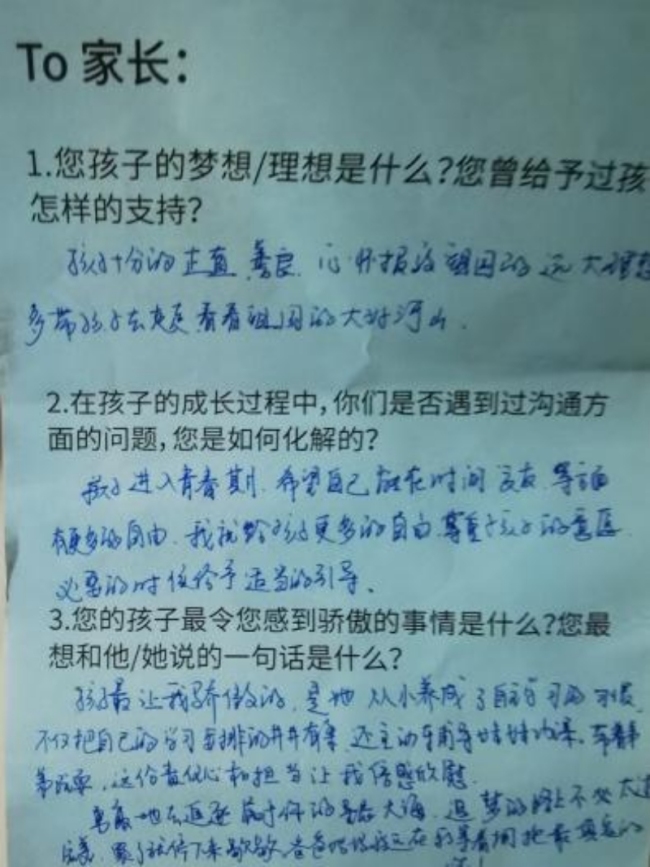 To 家长：
1.您孩子的梦想/理想是什么？您曾给予过孩
怎样的支持？
孩子十分的正直 善良、心怀报效祖国的远大理想
多带孩子去 看看祖国的大好河山．
2.在孩子的成长过程中，你们是否遇到过沟通方
面的问题，您是如何化解的？
孩子进入青春期．希望自己能在时间 交友 等方面
有更多的自由．我就给孩子更多的自由．尊重孩子的意愿
必要的时候给予适当的引导、
3.您的孩子最令您感到骄傲的事情是什么？您最
想和他/她说的一句话是什么？
孩子最让我骄傲的，是他从小养成了自主学习的习惯
不仅把自己的学习安排的井井有条 还主动辅导妹妹功课、
这份责任心和担当让我倍感欣慰．
去追逐属于你的 大海 追梦的路上不必太
累了就停下来歇歇、爸爸妈妈永远在 拥抱最真实的